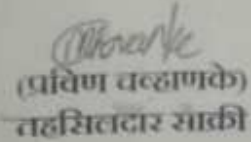 (प्रविण चव्हाणके)
तहसिलदार साक्री